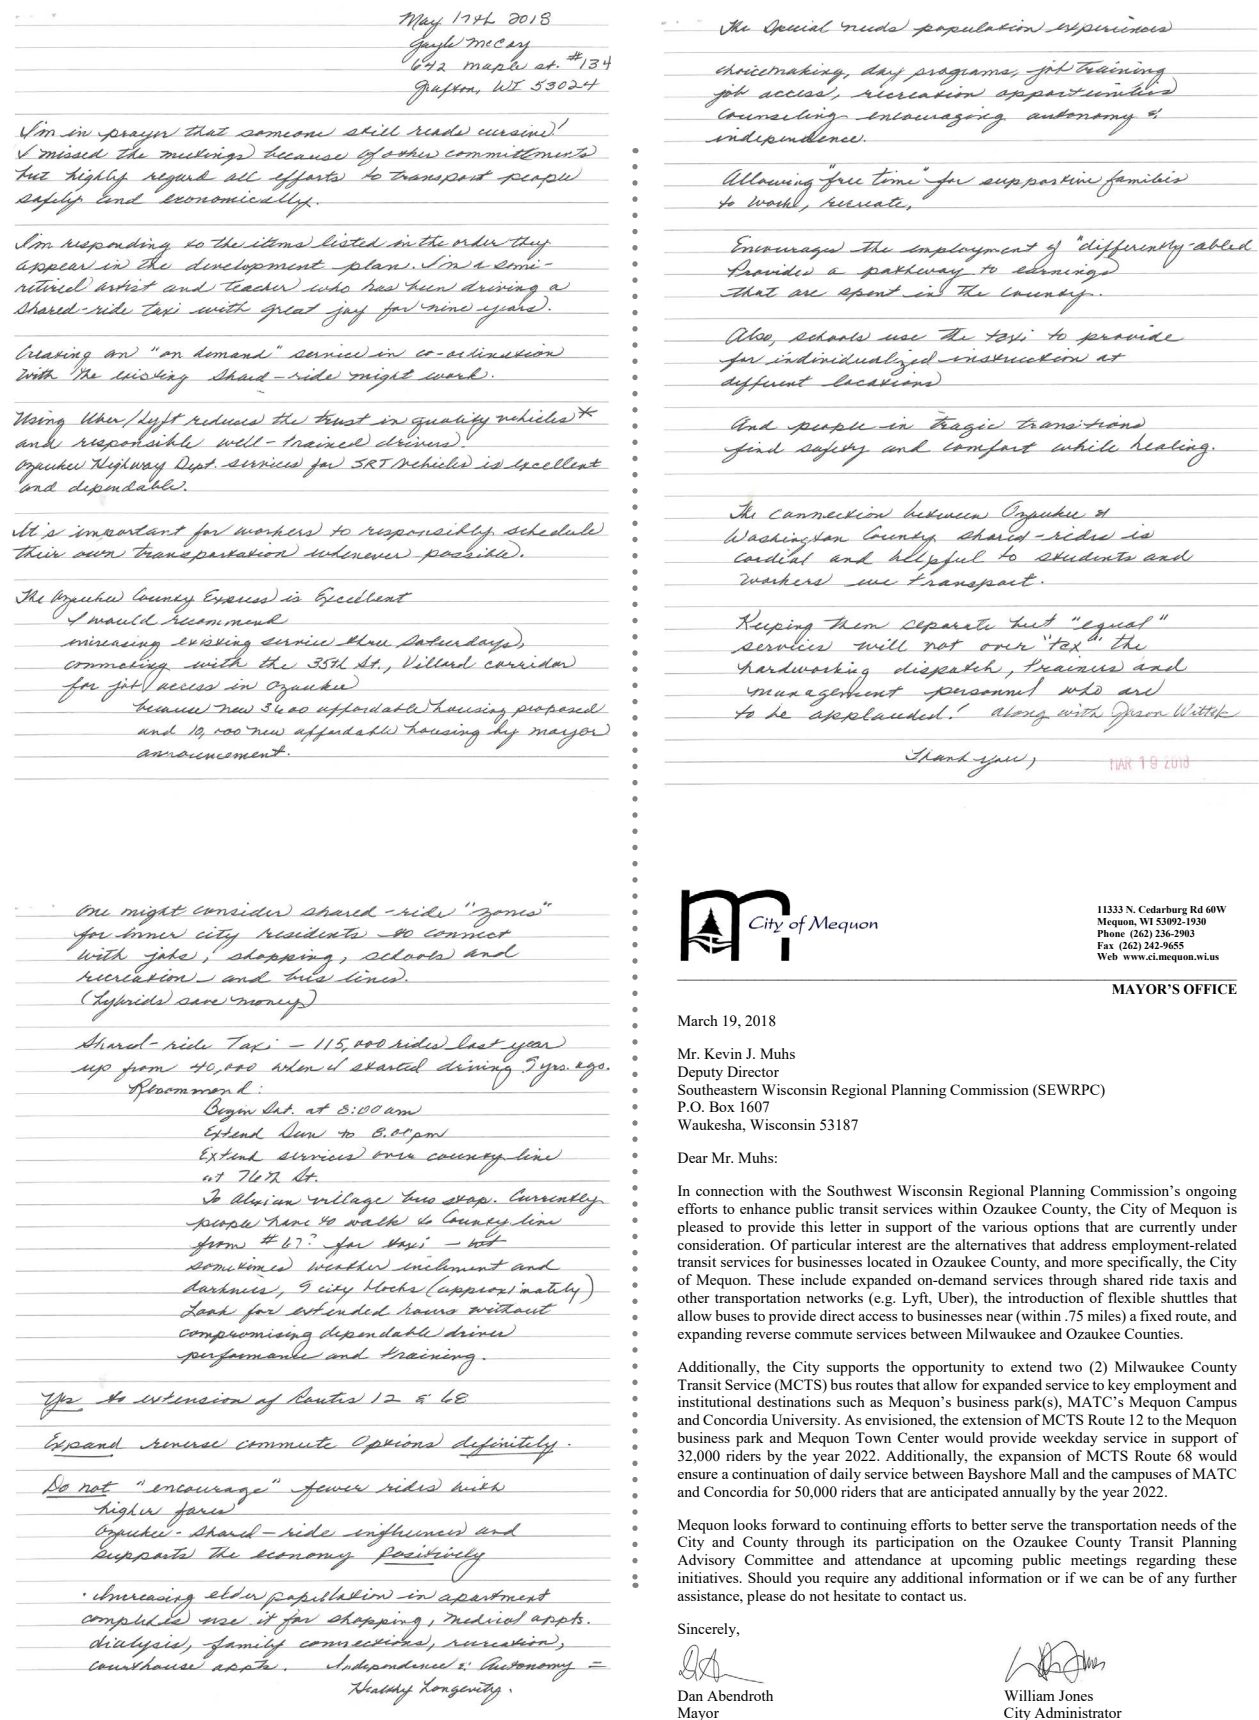 May 17th 2018
Gayle McCoy
642 Maple st. #134
Grafton, WI 53024
I'm in prayer that someone still reads cursive!
I missed the meetings because of other committments
but highly regard all efforts to transport people
safely and economically.
I'm responding to the items listed in the order they
appear in the development plan. I'm a semi-
retired artist and teacher who has been driving a
shared-ride taxi with great joy for nine years.
Creating an "on demand" service in co-ordination
with the existing shared-ride might work.
Using Uber/Lyft reduces the trust in quality vehicles*
and responsible well-trained drivers.
Ozaukee Highway Dept. services for SRT vehicles is excellent
and dependable.
It's important for workers to responsibly schedule
their own transportation whenever possible.
The Ozaukee County Express is Excellent
I would recommend
increasing existing service thru Saturdays,
connecting with the 35th St., Villard corridor
for job access in Ozaukee
because new 3600 affordable housing proposed
and 10,000 new affordable housing by mayor
announcement.
One might consider shared-ride "zones"
for inner city residents to connect
with jobs, shopping, schools and
recreation and bus lines.
(Hybrids save money)
Shared-ride Taxi - 115,000 rides last year
up from 40,000 when I started driving 9 yrs. ago.
Recommend:
Begin Sat. at 8:00 am
Extend Sun to 8:00 pm
Extend services over county line
at 76th St.
To Alexian village bus stop. Currently
people have to walk to County line
from #67? for taxi - wet
sometimes weather inclement and
darkness, 9 city blocks (approximately)
Look for extended hours without
compromising dependable driver
performance and training.
Yes to extension of Routes 12 & 68
Expand reverse commute Options definitely.
Do not "encourage" fewer rides with
higher fares
Ozaukee-shared-ride influences and
supports the economy positively
· Increasing elder population in apartment
complexes use it for shopping, medical appts.
dialysis, family connections, recreation,
courthouse appts. Independence & Autonomy =
Healthy Longevity.
The Special needs population experiences
choicemaking, day programs, job training
job access, recreation opportunities
Counseling encouraging autonomy &
independence.
Allowing "free time" for supportive families
to work, recreate,
Encourages the employment of "differently-abled
Provides a pathway to earnings
that are spent in the County.
Also, schools use the taxi to provide
for individualized instruction at
different locations
And people in tragic transitions
find safety and comfort while healing.
The connection between Ozaukee &
Washington County shared-rides is
cordial and helpful to students and
workers we transport.
Keeping them separate but "equal"
services will not over "tax" the
hardworking dispatch, trainers and
management personnel who are
to be applauded! along with Jason Wittek
Thank you,
MAR 19 2018
City of Mequon
11333 N. Cedarburg Rd 60W
Mequon, WI 53092-1930
Phone (262) 236-2903
Fax (262) 242-9655
Web www.ci.mequon.wi.us
MAYOR'S OFFICE
March 19, 2018
Mr. Kevin J. Muhs
Deputy Director
Southeastern Wisconsin Regional Planning Commission (SEWRPC)
P.O. Box 1607
Waukesha, Wisconsin 53187
Dear Mr. Muhs:
In connection with the Southwest Wisconsin Regional Planning Commission's ongoing
efforts to enhance public transit services within Ozaukee County, the City of Mequon is
pleased to provide this letter in support of the various options that are currently under
consideration. Of particular interest are the alternatives that address employment-related
transit services for businesses located in Ozaukee County, and more specifically, the City
of Mequon. These include expanded on-demand services through shared ride taxis and
other transportation networks (e.g. Lyft, Uber), the introduction of flexible shuttles that
allow buses to provide direct access to businesses near (within .75 miles) a fixed route, and
expanding reverse commute services between Milwaukee and Ozaukee Counties.
Additionally, the City supports the opportunity to extend two (2) Milwaukee County
Transit Service (MCTS) bus routes that allow for expanded service to key employment and
institutional destinations such as Mequon's business park(s), MATC's Mequon Campus
and Concordia University. As envisioned, the extension of MCTS Route 12 to the Mequon
business park and Mequon Town Center would provide weekday service in support of
32,000 riders by the year 2022. Additionally, the expansion of MCTS Route 68 would
ensure a continuation of daily service between Bayshore Mall and the campuses of MATC
and Concordia for 50,000 riders that are anticipated annually by the year 2022.
Mequon looks forward to continuing efforts to better serve the transportation needs of the
City and County through its participation on the Ozaukee County Transit Planning
Advisory Committee and attendance at upcoming public meetings regarding these
initiatives. Should you require any additional information or if we can be of any further
assistance, please do not hesitate to contact us.
Sincerely,
Dan Abendroth
Mayor
William Jones
City Administrator